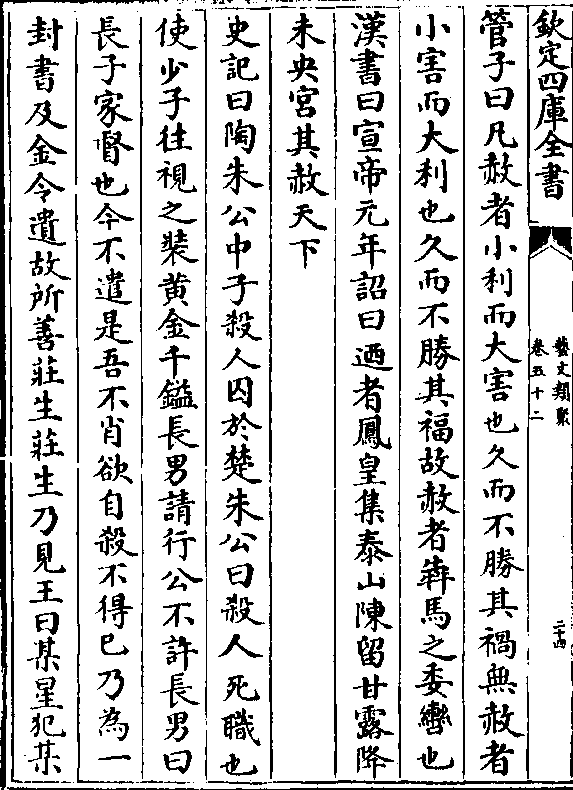 欽定四庫全書
藝文類聚
卷五十二
二十四
管子曰凡赦者小利而大害也久而不勝其禍無赦者
小害而大利也久而不勝其福故赦者犇馬之委轡也
漢書曰宣帝元年詔曰迺者鳳皇集泰山陳留甘露降
未央宮其赦天下
史記曰陶朱公中子殺人囚於楚朱公曰殺人死職也
使少子往視之裝黃金千鎰長男請行公不許長男曰
長子家督也今不遣是吾不肖欲自殺不得已乃為一
封書及金令遺故所善莊生莊生乃見王曰某星犯某